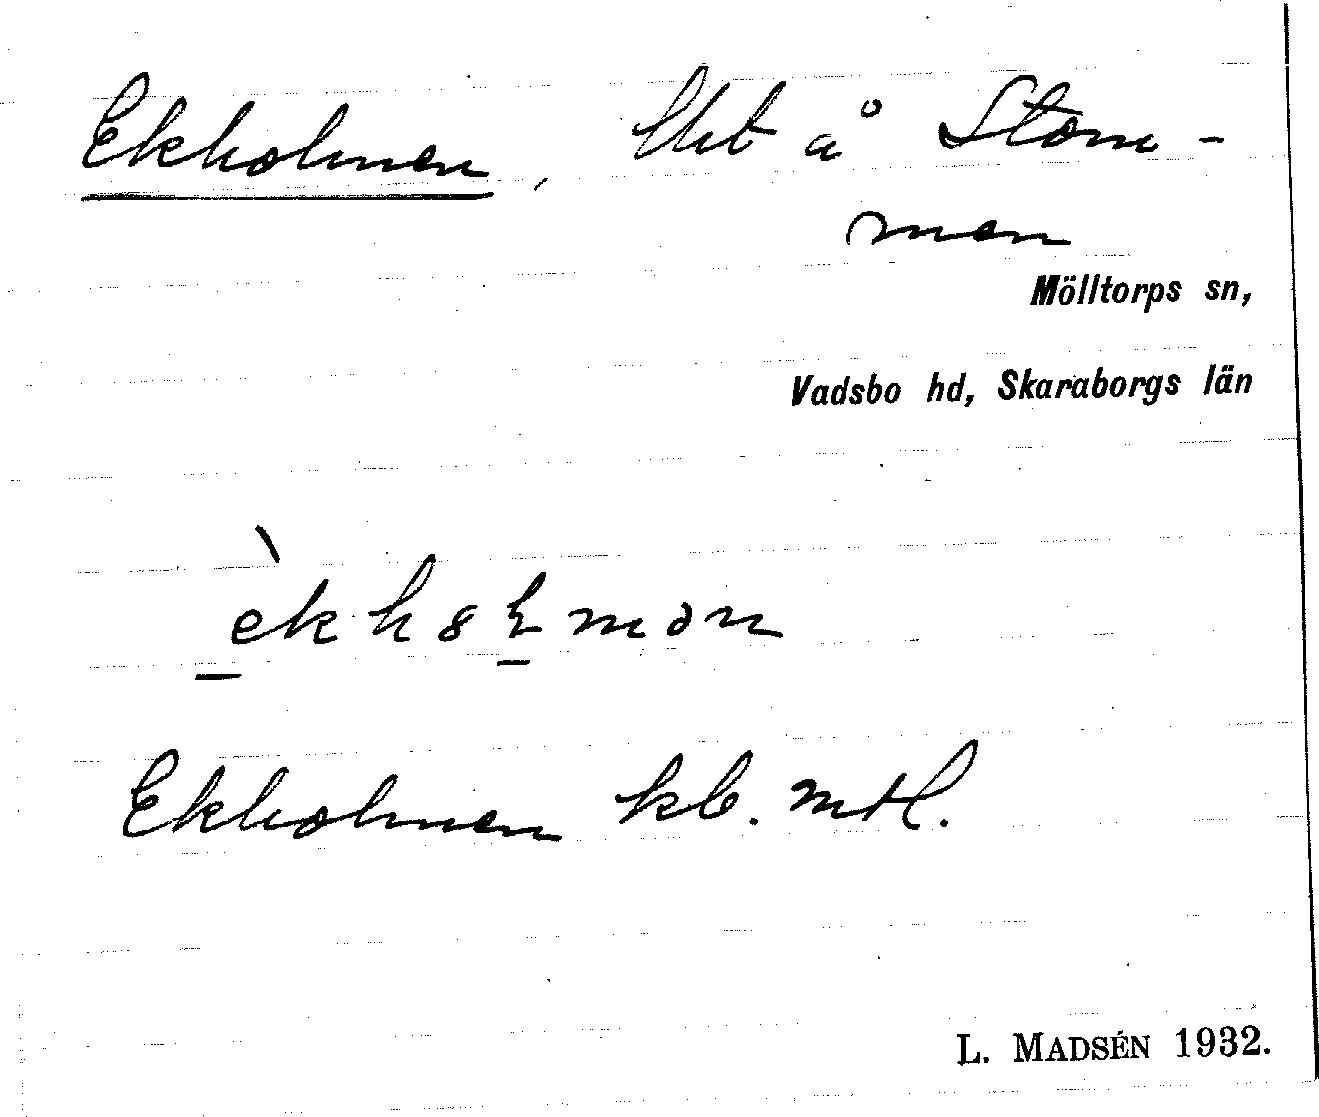 Ekholmen, lht å Stom-
men
Mölltorps sn,
Vadsbo hd, Skaraborgs län
Ekholmen kb. mtl.
L. MADSÉN 1932.